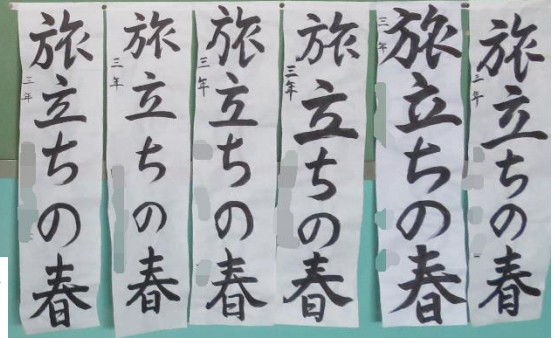 旅立ちの春
三年
旅立ちの春
三年
旅立ちの春
三年
旅立ちの春
三年
旅立ちの春
三年
旅立ちの春
三年